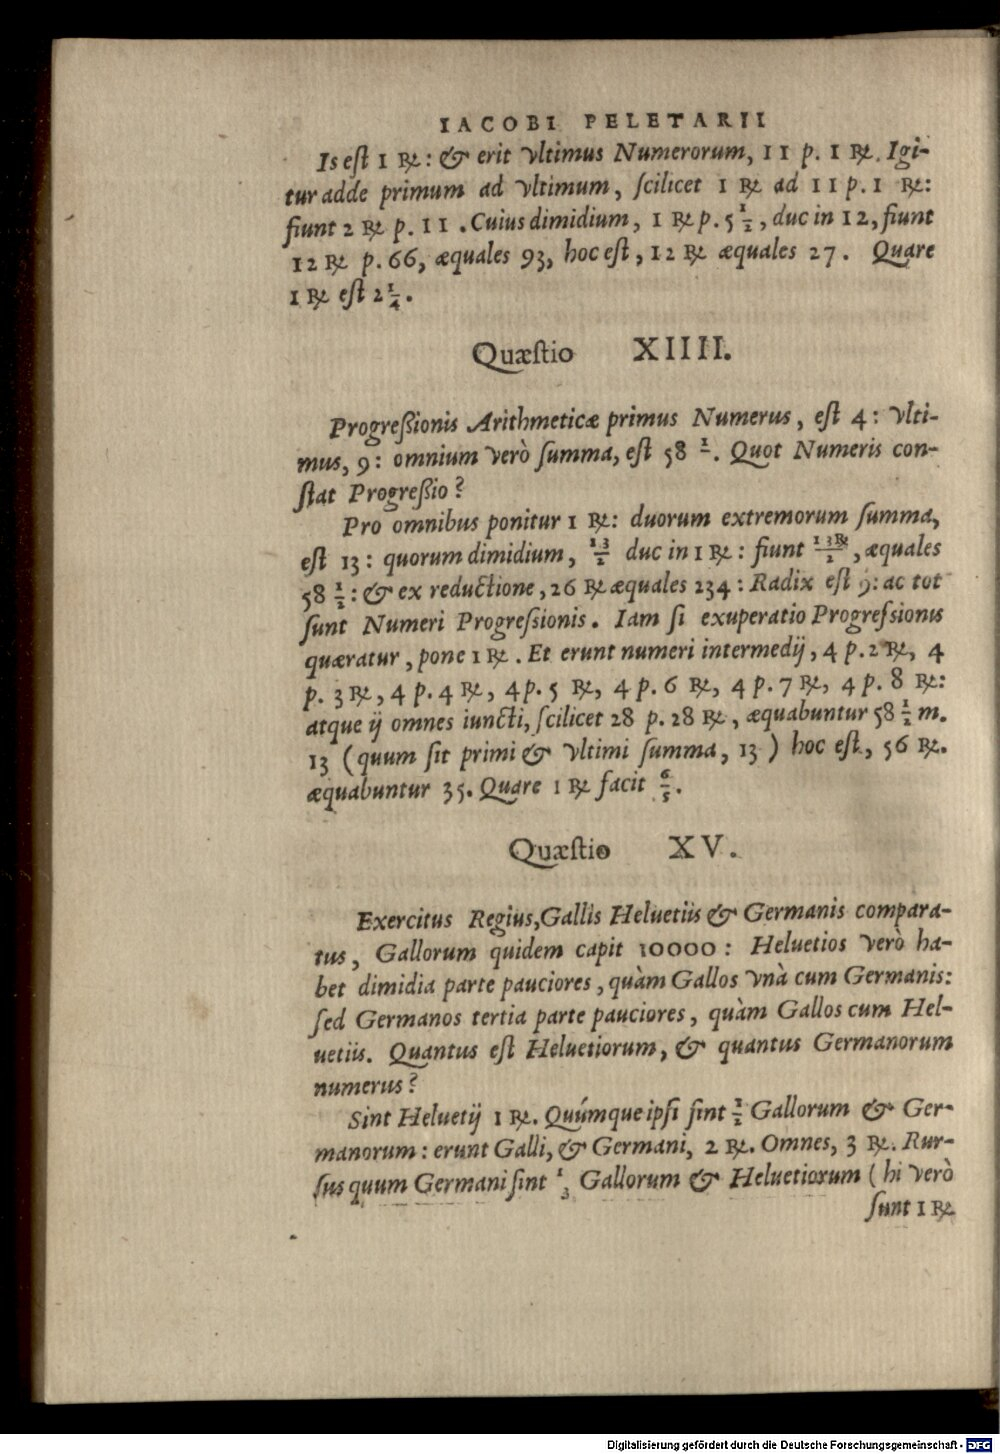 IACOBI PELETARII
Is est 1 ℞ : & erit vltimus Numerorum, 11 p. 1 ℞. Igi-
tur adde primum ad vltimum, scilicet 1 ℞ ad 11 p. 1 ℞:
fiunt 2 ℞ p. 11 . Cuius dimidium, 1 ℞ p. 5 1/2, duc in 12, fiunt
12 ℞ p. 66, æquales 93, hoc est, 12 ℞ æquales 27. Quare
1 ℞ est 2 1/4.
Quæstio XIIII.
Progreßionis Arithmeticæ primus Numerus, est 4: vlti-
mus, 9: omnium verò summa, est 58 1/. Quot Numeris con-
stat Progreßio?
Pro omnibus ponitur 1 ℞: duorum extremorum summa,
est 13: quorum dimidium, 13/2 duc in 1 ℞: fiunt 13℞/2, æquales
58 1/2: & ex reductione, 26 ℞ æquales 234: Radix est 9: ac tot
sunt Numeri Progressionis. Iam si exuperatio Progressionis
quæratur, pone 1 ℞. Et erunt numeri intermedij, 4 p. 2 ℞, 4
p. 3 ℞, 4 p. 4 ℞, 4 p. 5 ℞, 4 p. 6 ℞, 4 p. 7 ℞, 4 p. 8 ℞:
atque ij omnes iuncti, scilicet 28 p. 28 ℞, æquabuntur 58 1/2 m.
13 (quum sit primi & vltimi summa, 13) hoc est, 56 ℞.
æquabuntur 35. Quare 1 ℞ facit 6/5.
Quæstio XV.
Exercitus Regius, Gallis Heluetiis & Germanis compara-
tus, Gallorum quidem capit 10000: Heluetios verò ha-
bet dimidia parte pauciores, quàm Gallos vnà cum Germanis:
sed Germanos tertia parte pauciores, quàm Gallos cum Hel-
uetiis. Quantus est Heluetiorum, & quantus Germanorum
numerus?
Sint Heluetij 1 ℞. Quúmque ipsi sint 1/2 Gallorum & Ger-
manorum: erunt Galli, & Germani, 2 ℞. Omnes, 3 ℞. Rur-
sus quum Germani sint 1/3 Gallorum & Heluetiorum (hi verò
sunt 1 ℞
Digitalisierung gefördert durch die Deutsche Forschungsgemeinschaft - DFG